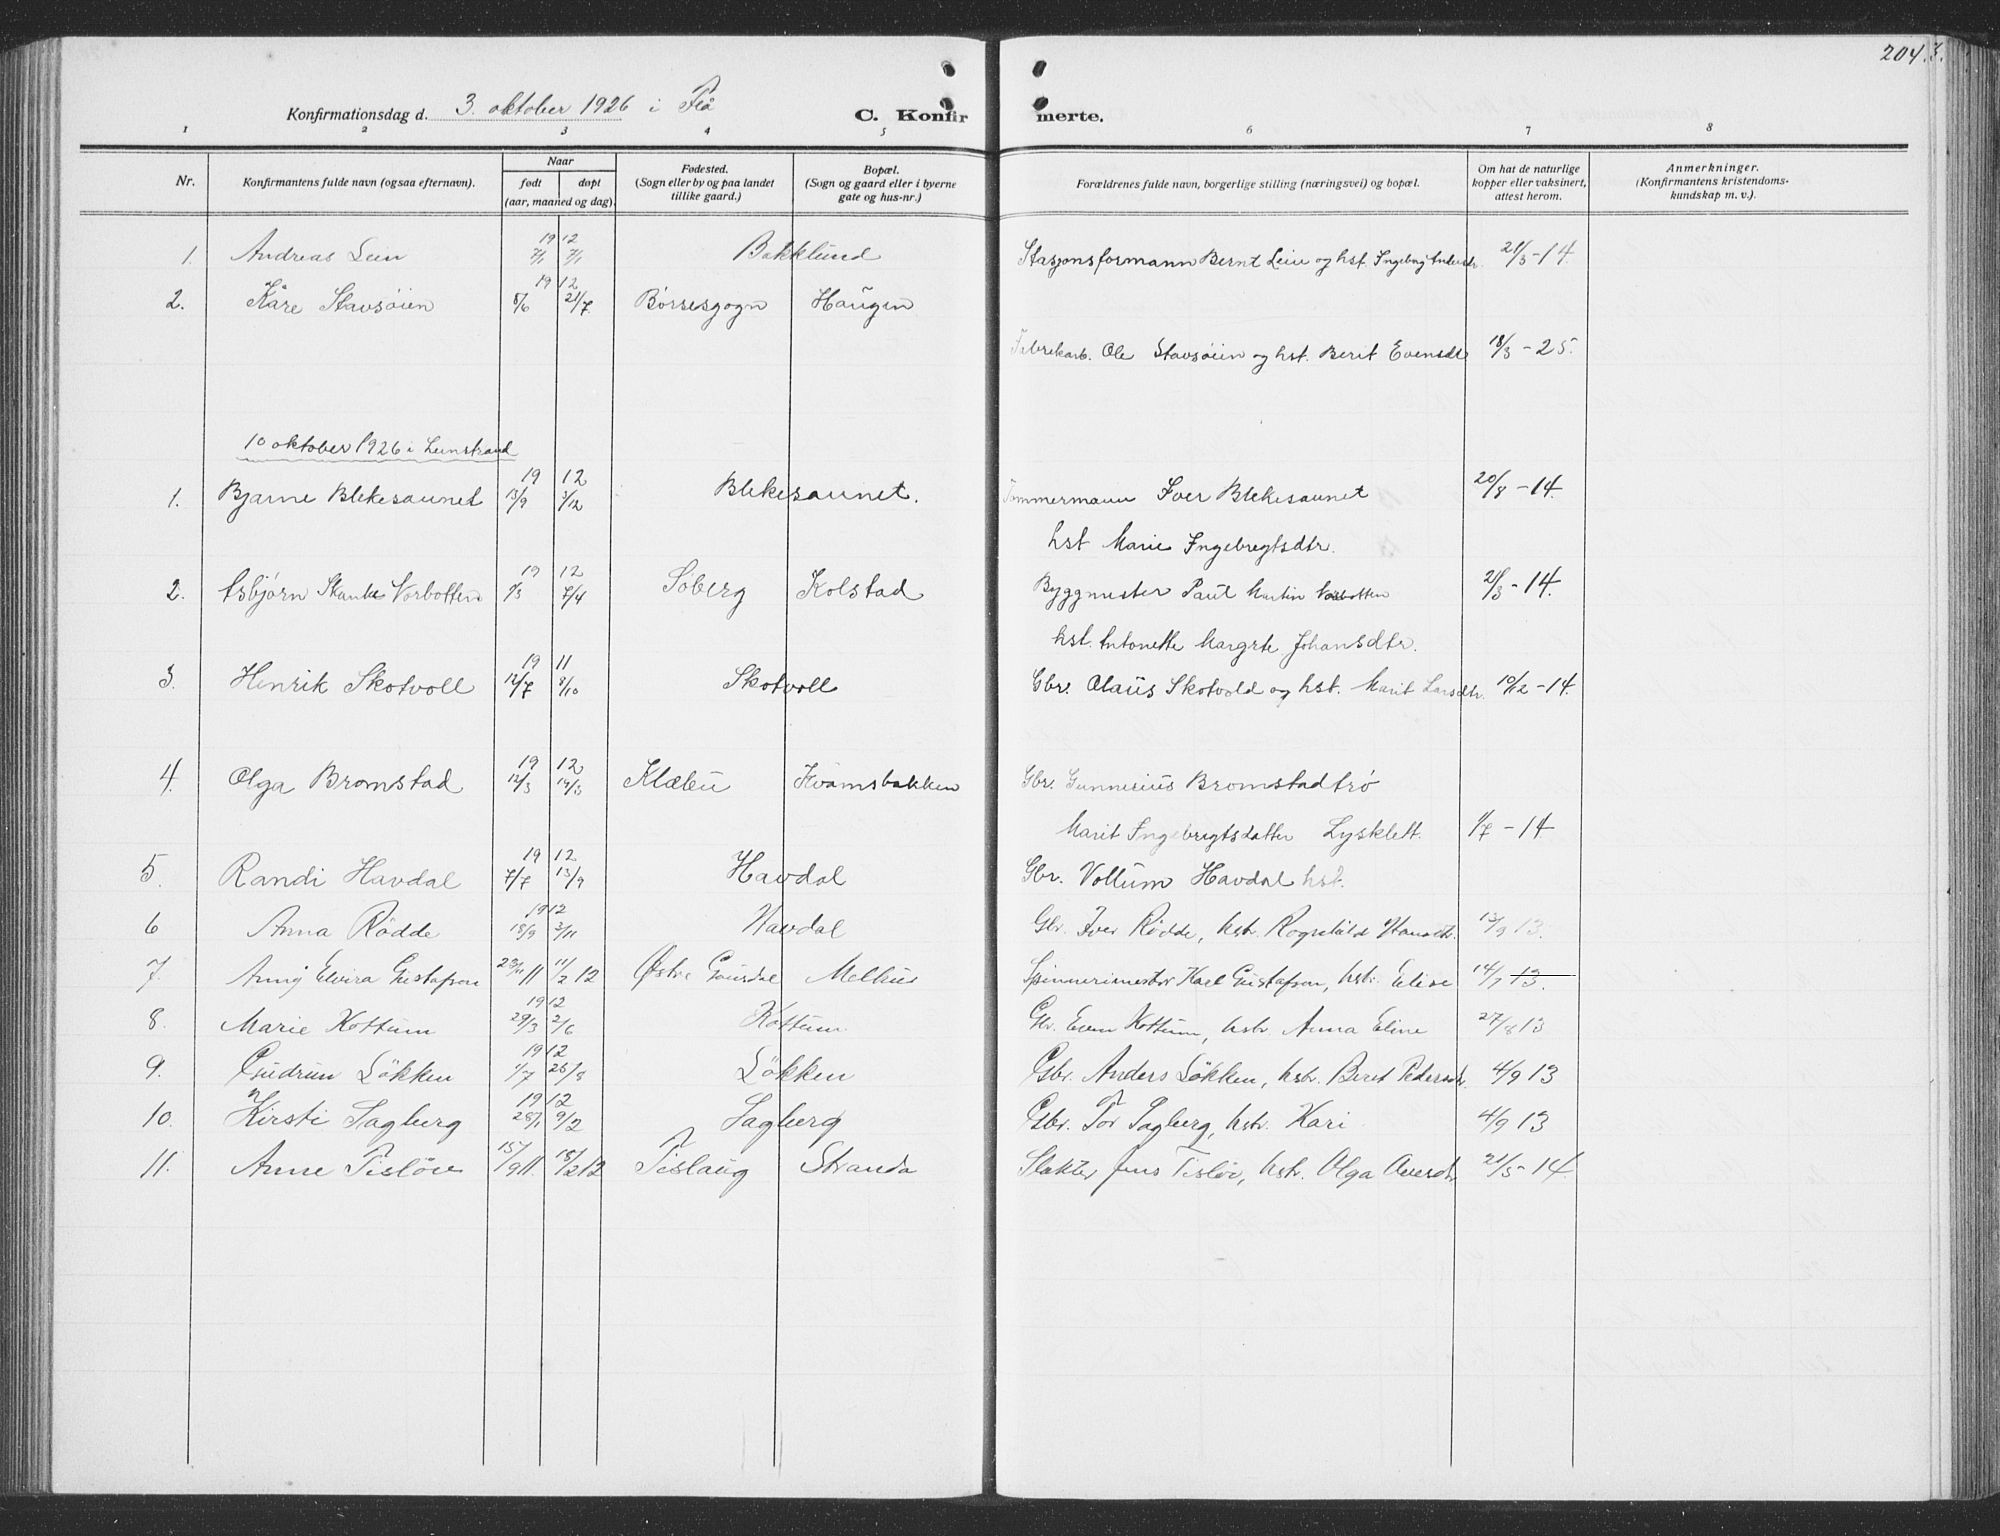 204.
3.
Konfirmationsdag d. 3. oktober 1926 i Flå
C. Konfirmerte.
1 2 3 4 5 6 7 8
Nr.
Konfirmantens fulde navn (ogsaa efternavn).
Naar
født døpt
(aar, maaned og dag).
Fødested.
(Sogn eller by og paa landet
tillike gaard.)
Bopæl.
(Sogn og gaard eller i byerne
gate og hus-nr.)
Forældrenes fulde navn, borgerlige stilling (næringsvei) og bopæl.
Om hat de naturlige
kopper eller vaksinert,
attest herom.
Anmerkninger.
(Konfirmantens kristendoms-
kundskap m. v.).
19 12
1. Andreas Lein 7/1 7/1 Bakklund Stasjonsformann Bernt Lein og hst. 21/3-14.
19 12
2. Kåre Stavsøien 8/6 21/7 Børsesgogn Haugen
Fabrekarb. Ole Stavsøien og hst. Berit Evensdtr 18/3-25.
10 oktober 1926 i Leinstrand
19 12
1. Bjarne Blekesaunet 13/9 1/12 Blekesaunet. Tømmermann Iver Blekesaunet 20/8-14.
hst Marie Ingebregtsdtr.
19 12
2. Asbjørn Vorbotten 7/4 Søberg Kolstad Byggmester Paul Martin Vorbotten 21/3-14.
hst. Antonette Margrte Johansdtr.
19 11
3. Henrik Skotvoll 12/7 8/10 Skotvoll Gbr. Olaus Skotvold og hst. Marit Larsdtr. 10/12-14.
19 12
4. Olga Bromstad 12/3 19/5 Klæbu Kvamsbakken Gbr. Gunnerius Bromstadtrø
Marit Ingebrigtsdatter Lysklett. 1/7-14
19 12
5. Randi Havdal 7/7 13/9 Havdal Gbr. Vollum Havdal hst.
1912
6 Anna Rödde 18/9 3/11 Havdal Gbr. Iver Rödde, hstr. Ragnhild Hansdtr. 13/9 13.
7. Anny Elvira Gustafson 28/11 11 11/2 12 Østre Gausdal Melhus Spinnerimester Karl Gustafson, hstr. Elise 14/7 13.
1912
8. Marie Kottum 29/3 2/6 Kottum Gbr. Even Kottum, hstr. Anna Eline 27/8 13
1912
9. Gudrun Lökken 1/7 25/8 Lökken Gbr. Anders Lökken, hstr. Beret Pedersdtr. 4/9 13
1912
10. Kirsti Sagberg 28/1 9/2 Sagberg Gbr. Tor Sagberg, hstr. Kari 4/9 13
11. Anne Tislöv 15/9 11. 18/2 12 Tislaug Stranda Slakter Jens Tislöv, hstr. Olga 21/5-14.